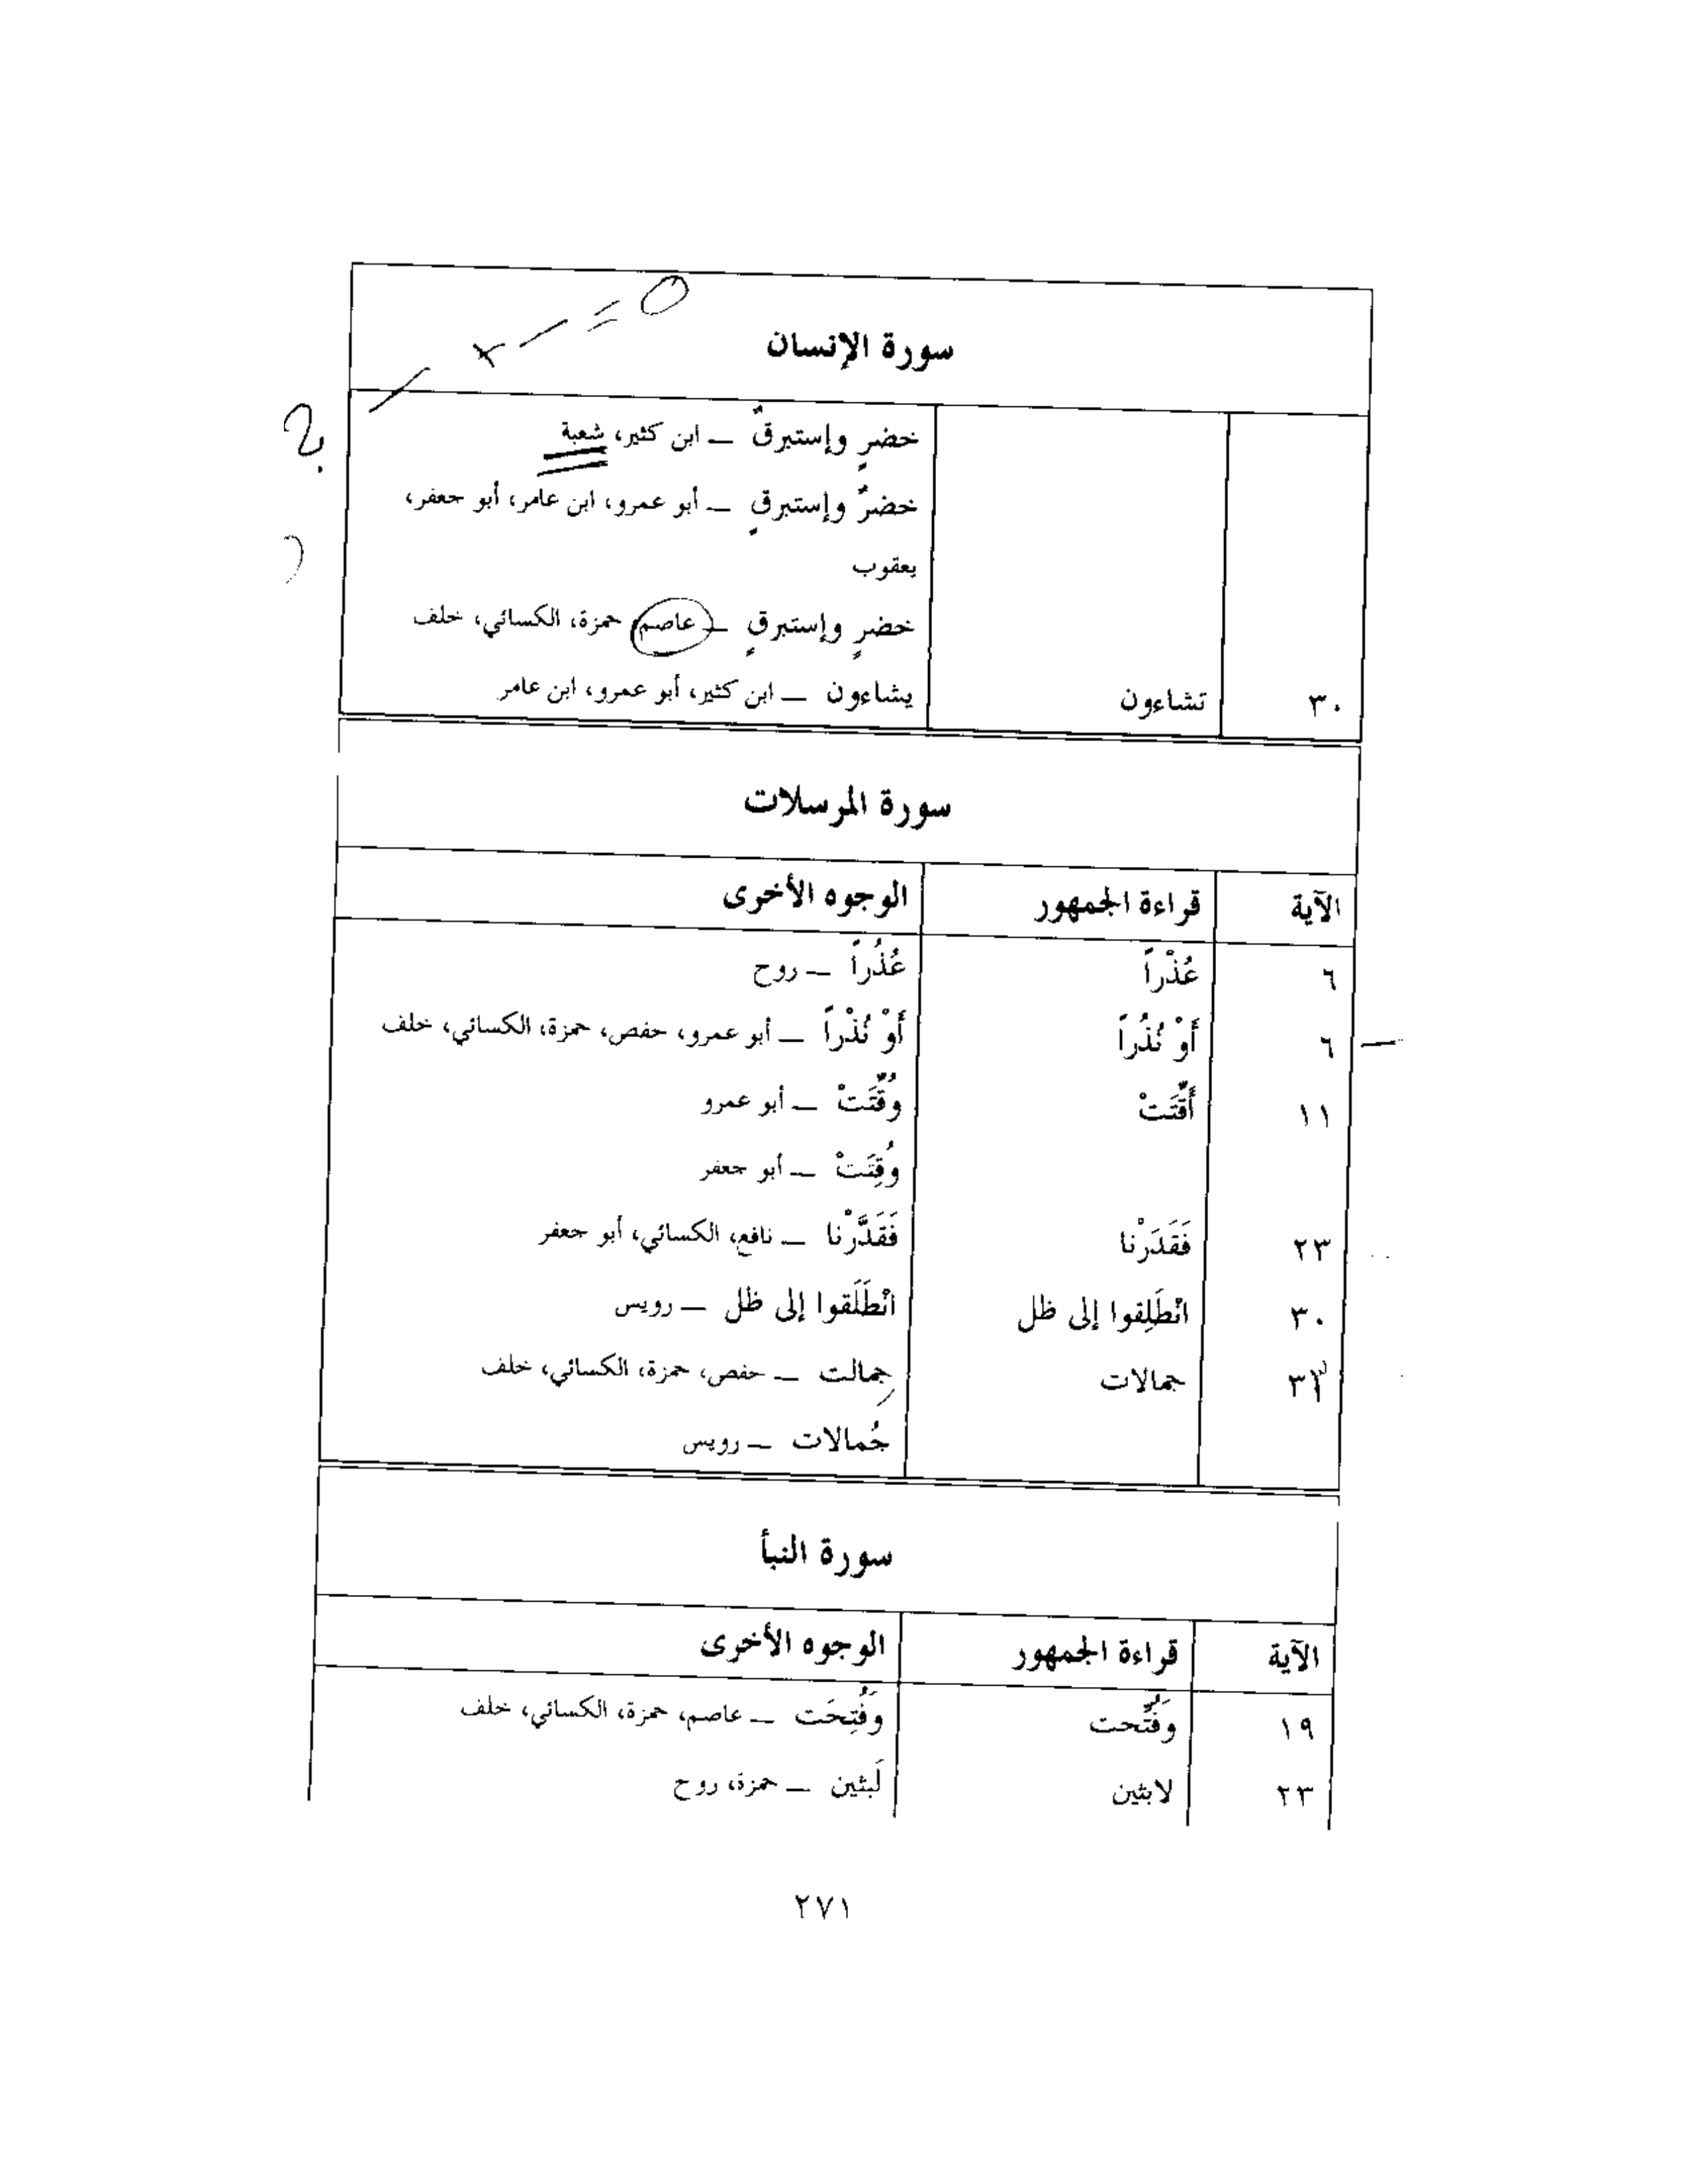 سورة الإنسان
خضرٍ وإستبرقٌ ــ ابن كثير، شعبة
خضرٌ وإستبرقٍ ــ أبو عمرو، ابن عامر، أبو جعفر،
يعقوب
خضرٍ وإستبرقٍ ــ عاصم، حمزة، الكسائي، خلف
٣٠ تشاءون يشاءون ــ ابن كثير، أبو عمرو، ابن عامر
سورة المرسلات
الآية قراءة الجمهور الوجوه الأخرى
٦ عُذْراً عُذُراً ــ روح
٦ أَوْ نُذُراً أَوْ نُذْراً ــ أبو عمرو، حفص، حمزة، الكسائي، خلف
١١ أُقِّتَتْ وُقِّتَتْ ــ أبو عمرو
وُقِتَتْ ــ أبو جعفر
٢٣ فَقَدَرْنا فَقَدَّرْنا ــ نافع، الكسائي، أبو جعفر
٣٠ انْطَلِقوا إلى ظل انْطَلَقوا إلى ظل ــ رويس
جمالات جِمالت ــ حفص، حمزة، الكسائي، خلف
جُمالات ــ رويس
سورة النبأ
الآية قراءة الجمهور الوجوه الأخرى
١٩ وَفُتِّحت وَفُتِحَت ــ عاصم، حمزة، الكسائي، خلف
٢٣ لابثين لَبثين ــ حمزة، روح
٢٧١